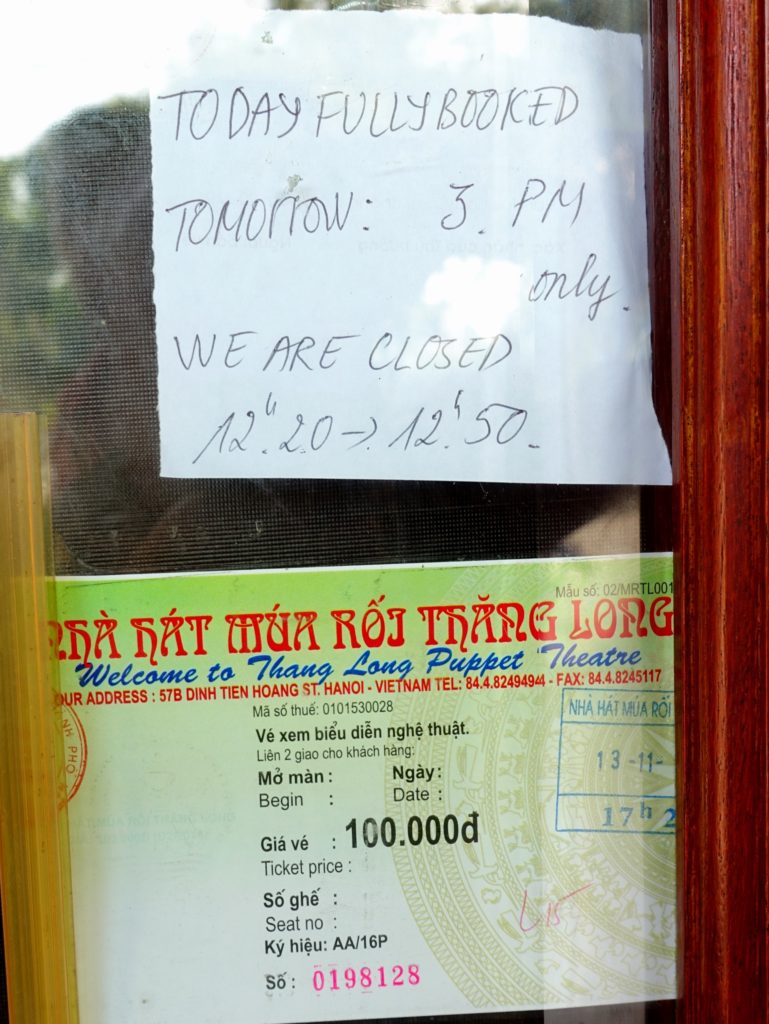 TODAY FULLY BOOKED
TOMORROW: 3. PM
only.
WE ARE CLOSED
12h.20 -> 12h50.
Mẫu số: 02/MRTL001
NHÀ HÁT MÚA RỐI THĂNG LONG
Welcome to Thang Long Puppet Theatre
OUR ADDRESS : 57B DINH TIEN HOANG ST. HANOI - VIETNAM TEL: 84.4.8249494 - FAX: 84.4.8245117
Mã số thuế: 0101530028
NHÀ HÁT MÚA RỐI
Vé xem biểu diễn nghệ thuật.
Liên 2 giao cho khách hàng:
13-11-
Mở màn : Ngày :
Begin : Date :
17h 2
Giá vé : 100.000đ
Ticket price :
Số ghế :
Seat no :
L15
Ký hiệu: AA/16P
Số : 0198128